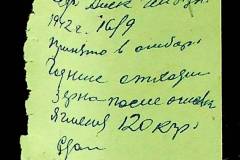 1942 г. 16/9
Принято в амбар
Годные отходы
Зерна после очистки
Ячменя 120 кгр.
Сдал